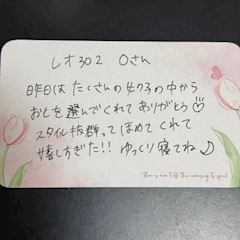 レオ302 Oさん
昨日は たくさんの女の子の中から
おとを選んでくれて ありがとう♡
スタイル抜群ってほめて くれて
嬉しすぎた!! ゆっくり寝てね♪